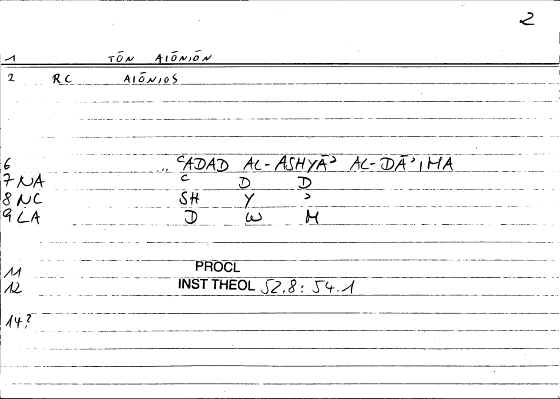 2
1 TŌN AIŌNIŌN
2 RC AIŌNIOS
6 .. ʿADAD AL-ASHYĀʾ AL-DĀʾIMA
7 NA ʿ D D
8 NC SH Y ʾ
9 LA D W M
11 PROCL
12 INST THEOL 52.8: 54.1
14?